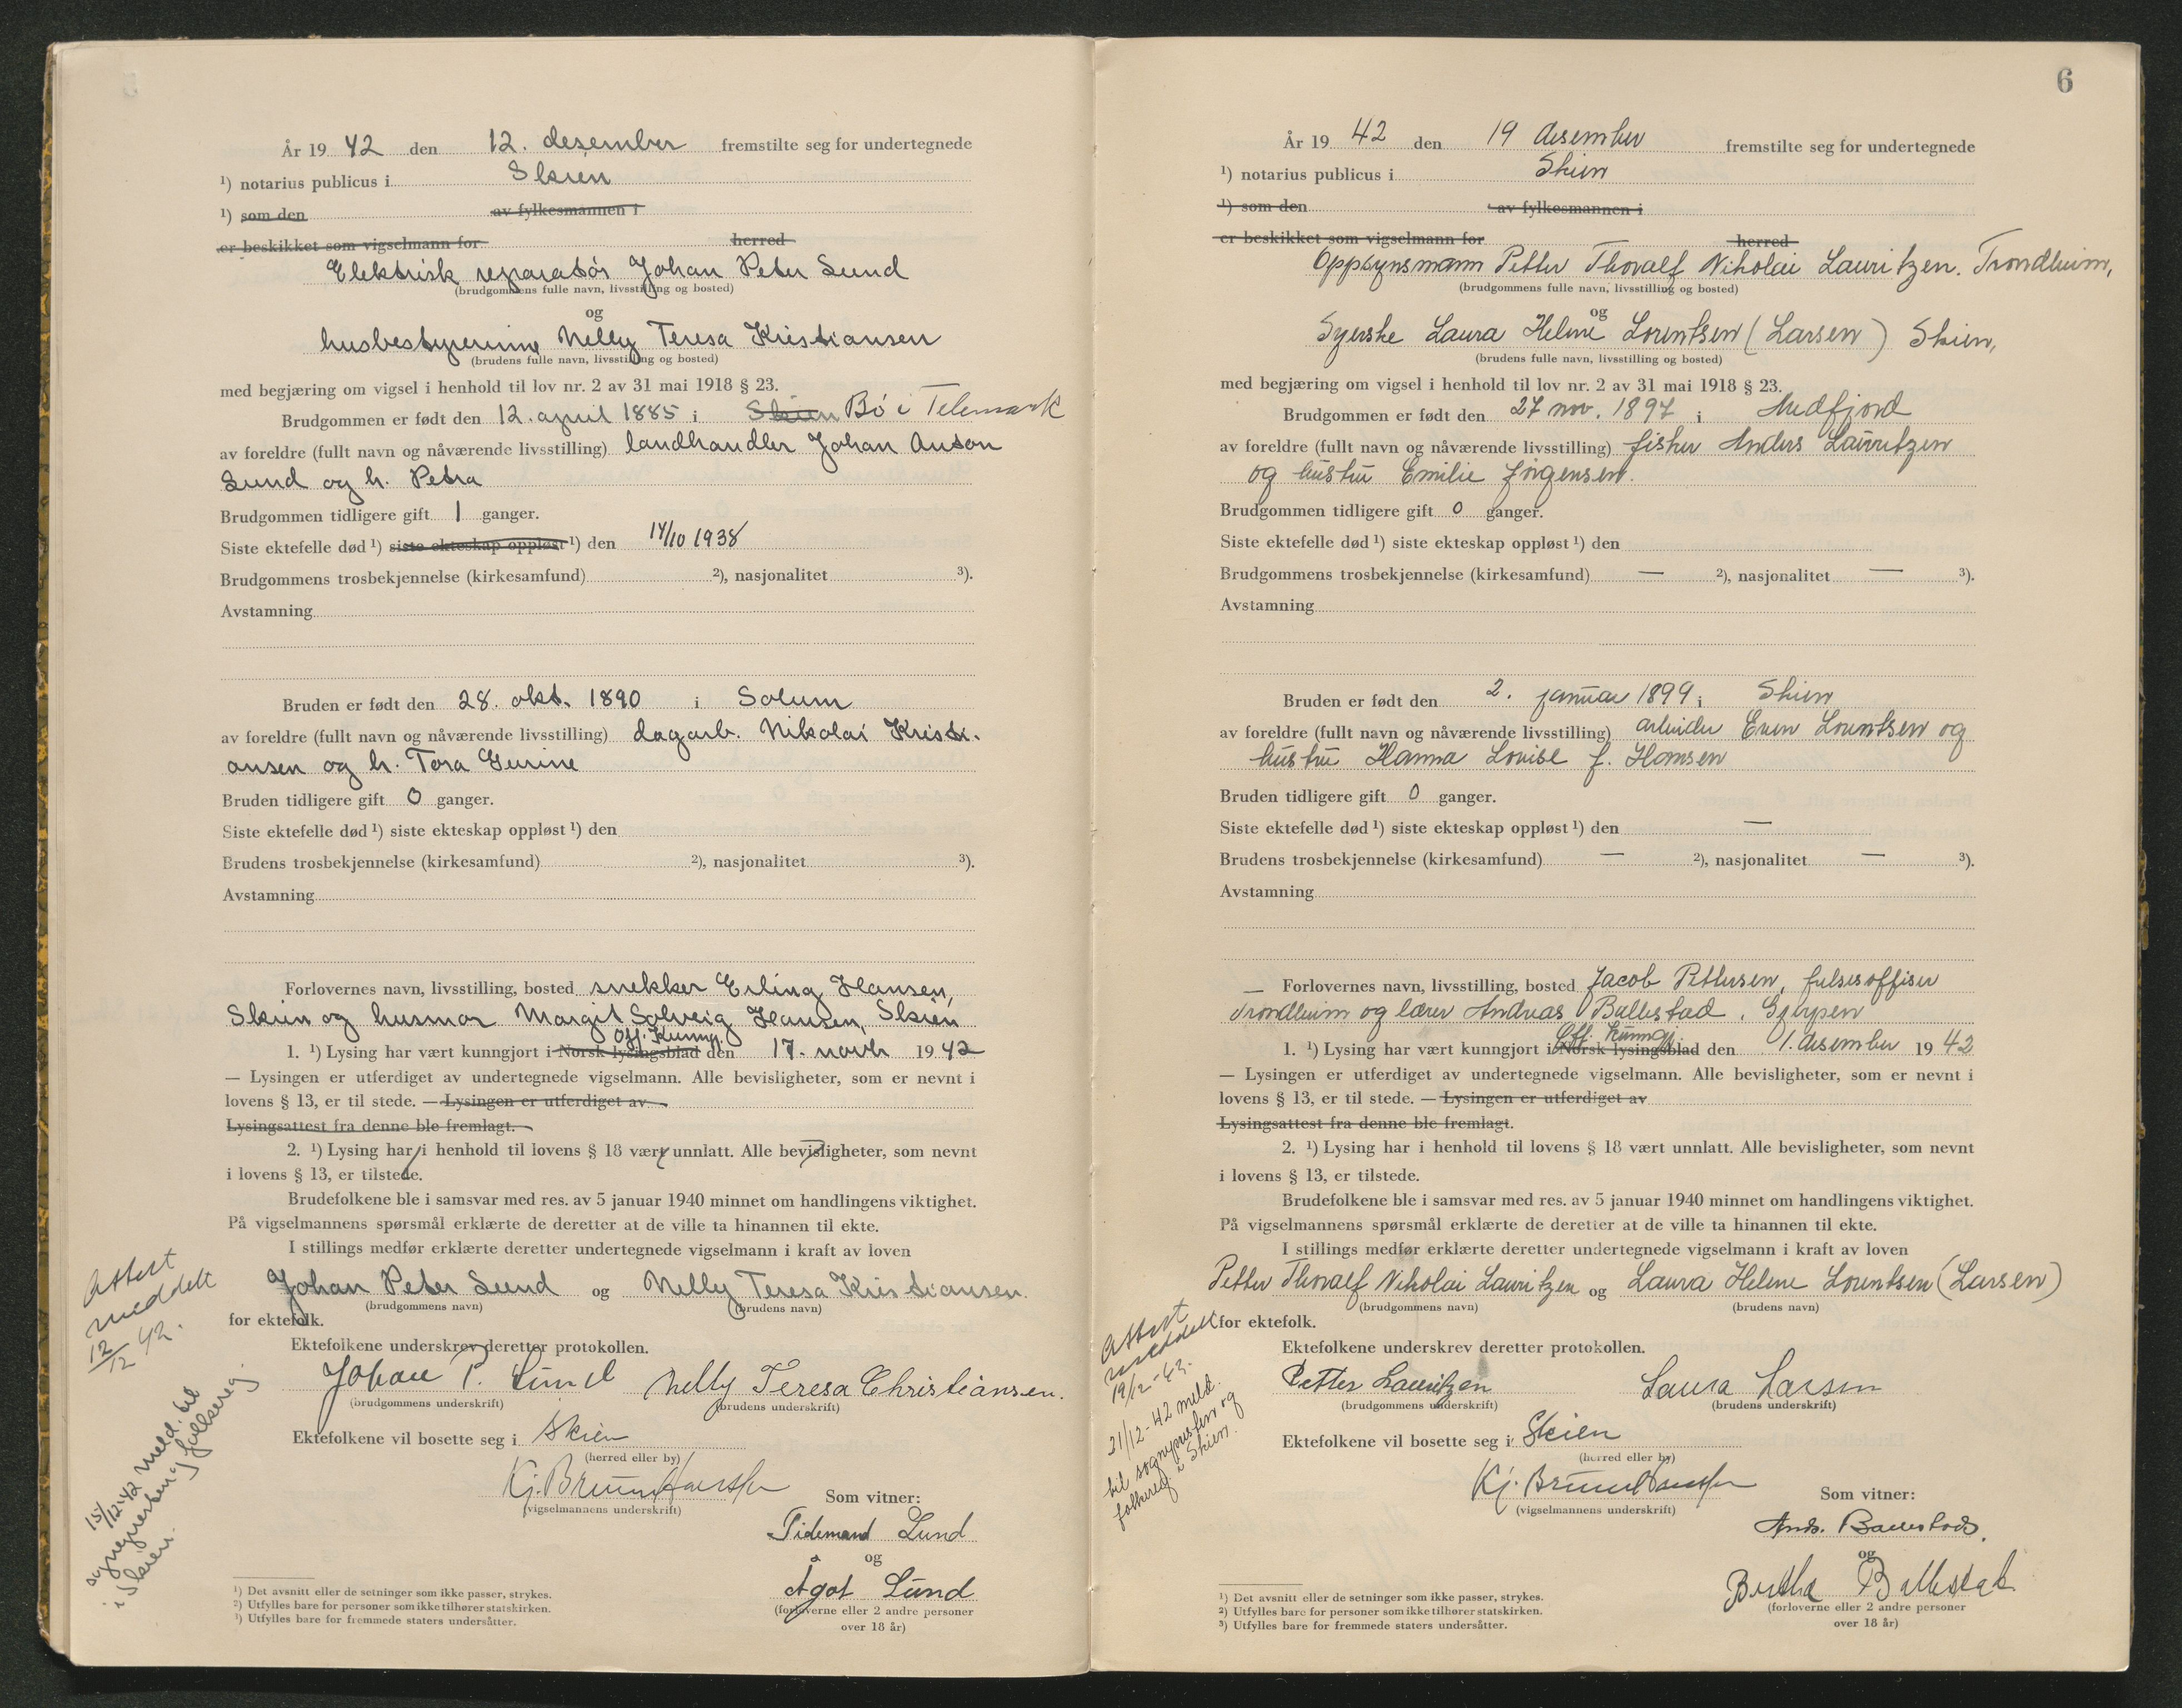 År 19 42 den 12. desember fremstilte seg for undertegnede
¹) notarius publicus i Skien
¹) som den av fylkesmannen i
er beskikket som vigselmann for herred
Elektrisk reparatør Johan Peter Lund
(brudgommens fulle navn, livsstilling og bosted)
og
husbestyrerinne Nelly Teresa Kristiansen
(brudens fulle navn, livsstilling og bosted)
med begjæring om vigsel i henhold til lov nr. 2 av 31 mai 1918 § 23.
Brudgommen er født den 12. april 1885 i Skien Bø i Telemark
av foreldre (fullt navn og nåværende livsstilling) landhandler Johan Anton
Lund og h. Petra
Brudgommen tidligere gift 1 ganger.
Siste ektefelle død ¹) siste ekteskap oppløst ¹) den 14/10 1938
Brudgommens trosbekjennelse (kirkesamfund) ²), nasjonalitet ³).
Avstamning
Bruden er født den 28. okt. 1890 i Solum
av foreldre (fullt navn og nåværende livsstilling) dagarb. Nikolai Kristi-
ansen og h. Tora Gurine
Bruden tidligere gift 0 ganger.
Siste ektefelle død ¹) siste ekteskap oppløst ¹) den
Brudens trosbekjennelse (kirkesamfund) ²), nasjonalitet ³).
Avstamning
Forlovernes navn, livsstilling, bosted snekker Erling Hansen,
Skien og husmor Margit Solveig Hansen, Skien
Off. Kunng.
1. ¹) Lysing har vært kunngjort i Norsk lysingsblad den 17. novbr 19 42
— Lysingen er utferdiget av undertegnede vigselmann. Alle bevisligheter, som er nevnt i
lovens § 13, er til stede. — Lysingen er utferdiget av
Lysingsattest fra denne ble fremlagt.
2. ¹) Lysing har i henhold til lovens § 18 vært unnlatt. Alle bevisligheter, som nevnt
i lovens § 13, er tilstede.
Brudefolkene ble i samsvar med res. av 5 januar 1940 minnet om handlingens viktighet.
På vigselmannens spørsmål erklærte de deretter at de ville ta hinannen til ekte.
I stillings medfør erklærte deretter undertegnede vigselmann i kraft av loven
Johan Peter Lund og Nelly Teresa Kristiansen.
(brudgommens navn) (brudens navn)
for ektefolk.
Ektefolkene underskrev deretter protokollen.
Johan P. Lund Nelly Teresa Christiansen.
(brudgommens underskrift) (brudens underskrift)
Ektefolkene vil bosette seg i Skien
(herred eller by)
(vigselmannens underskrift)
Som vitner:
Tidemand Lund
og
Ågot Lund
(forloverne eller 2 andre personer
over 18 år)
¹) Det avsnitt eller de setninger som ikke passer, strykes.
²) Utfylles bare for personer som ikke tilhører statskirken.
³) Utfylles bare for fremmede staters undersåtter.
Attest
meddelt
12/12 42.
15/12-42 meld. til
sognepresten og folkereg
i Skien.
6
År 19 42 den 19 desember fremstilte seg for undertegnede
¹) notarius publicus i Skien
¹) som den av fylkesmannen i
er beskikket som vigselmann for herred
Oppsynsmann Petter Thoralf Nikolai Lauritzen. Trondheim,
(brudgommens fulle navn, livsstilling og bosted)
og
Syerske Laura Helene Lorentsen (Larsen) Skien,
(brudens fulle navn, livsstilling og bosted)
med begjæring om vigsel i henhold til lov nr. 2 av 31 mai 1918 § 23.
Brudgommen er født den 27 nov. 1897 i Medfjord
av foreldre (fullt navn og nåværende livsstilling) fisker Anders Lauritzen
og hustru Emilie Jörgensen.
Brudgommen tidligere gift 0 ganger.
Siste ektefelle død ¹) siste ekteskap oppløst ¹) den
Brudgommens trosbekjennelse (kirkesamfund) — ²), nasjonalitet — ³).
Avstamning
Bruden er født den 2. januar 1899 i Skien
av foreldre (fullt navn og nåværende livsstilling) arbeider Even Lorentsen og
hustru Hanna Louise f. Hansen
Bruden tidligere gift 0 ganger.
Siste ektefelle død ¹) siste ekteskap oppløst ¹) den —
Brudens trosbekjennelse (kirkesamfund) — ²), nasjonalitet — ³).
Avstamning
— Forlovernes navn, livsstilling, bosted Jacob Pettersen, frelsesoffiser
Trondheim og lærer Andreas Ballestad, Gjerpen
Off. kunngj.
1. ¹) Lysing har vært kunngjort i Norsk lysingsblad den 1. desember 19 42
— Lysingen er utferdiget av undertegnede vigselmann. Alle bevisligheter, som er nevnt i
lovens § 13, er til stede. — Lysingen er utferdiget av
Lysingsattest fra denne ble fremlagt.
2. ¹) Lysing har i henhold til lovens § 18 vært unnlatt. Alle bevisligheter, som nevnt
i lovens § 13, er tilstede.
Brudefolkene ble i samsvar med res. av 5 januar 1940 minnet om handlingens viktighet.
På vigselmannens spørsmål erklærte de deretter at de ville ta hinannen til ekte.
I stillings medfør erklærte deretter undertegnede vigselmann i kraft av loven
Petter Thoralf Nikolai Lauritzen og Laura Helene Lorentsen (Larsen)
(brudgommens navn) (brudens navn)
for ektefolk.
Ektefolkene underskrev deretter protokollen.
Petter Lauritzen Laura Larsen
(brudgommens underskrift) (brudens underskrift)
Ektefolkene vil bosette seg i Skien
(herred eller by)
(vigselmannens underskrift)
Som vitner:
Andr. Ballestad.
og
Bertha Ballestad
(forloverne eller 2 andre personer
over 18 år)
¹) Det avsnitt eller de setninger som ikke passer, strykes.
²) Utfylles bare for personer som ikke tilhører statskirken.
³) Utfylles bare for fremmede staters undersåtter.
Attest
meddelt
19/12-42.
21/12-42 meld.
til sognepresten og
folkereg i Skien.